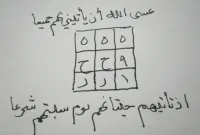 عسى الله أن يأتيني بهم جميعا
٥ ٥ ٥
ح ح ٩
ر ر ا
اذ تأتيهم حيتانهم يوم سبتهم شرعا